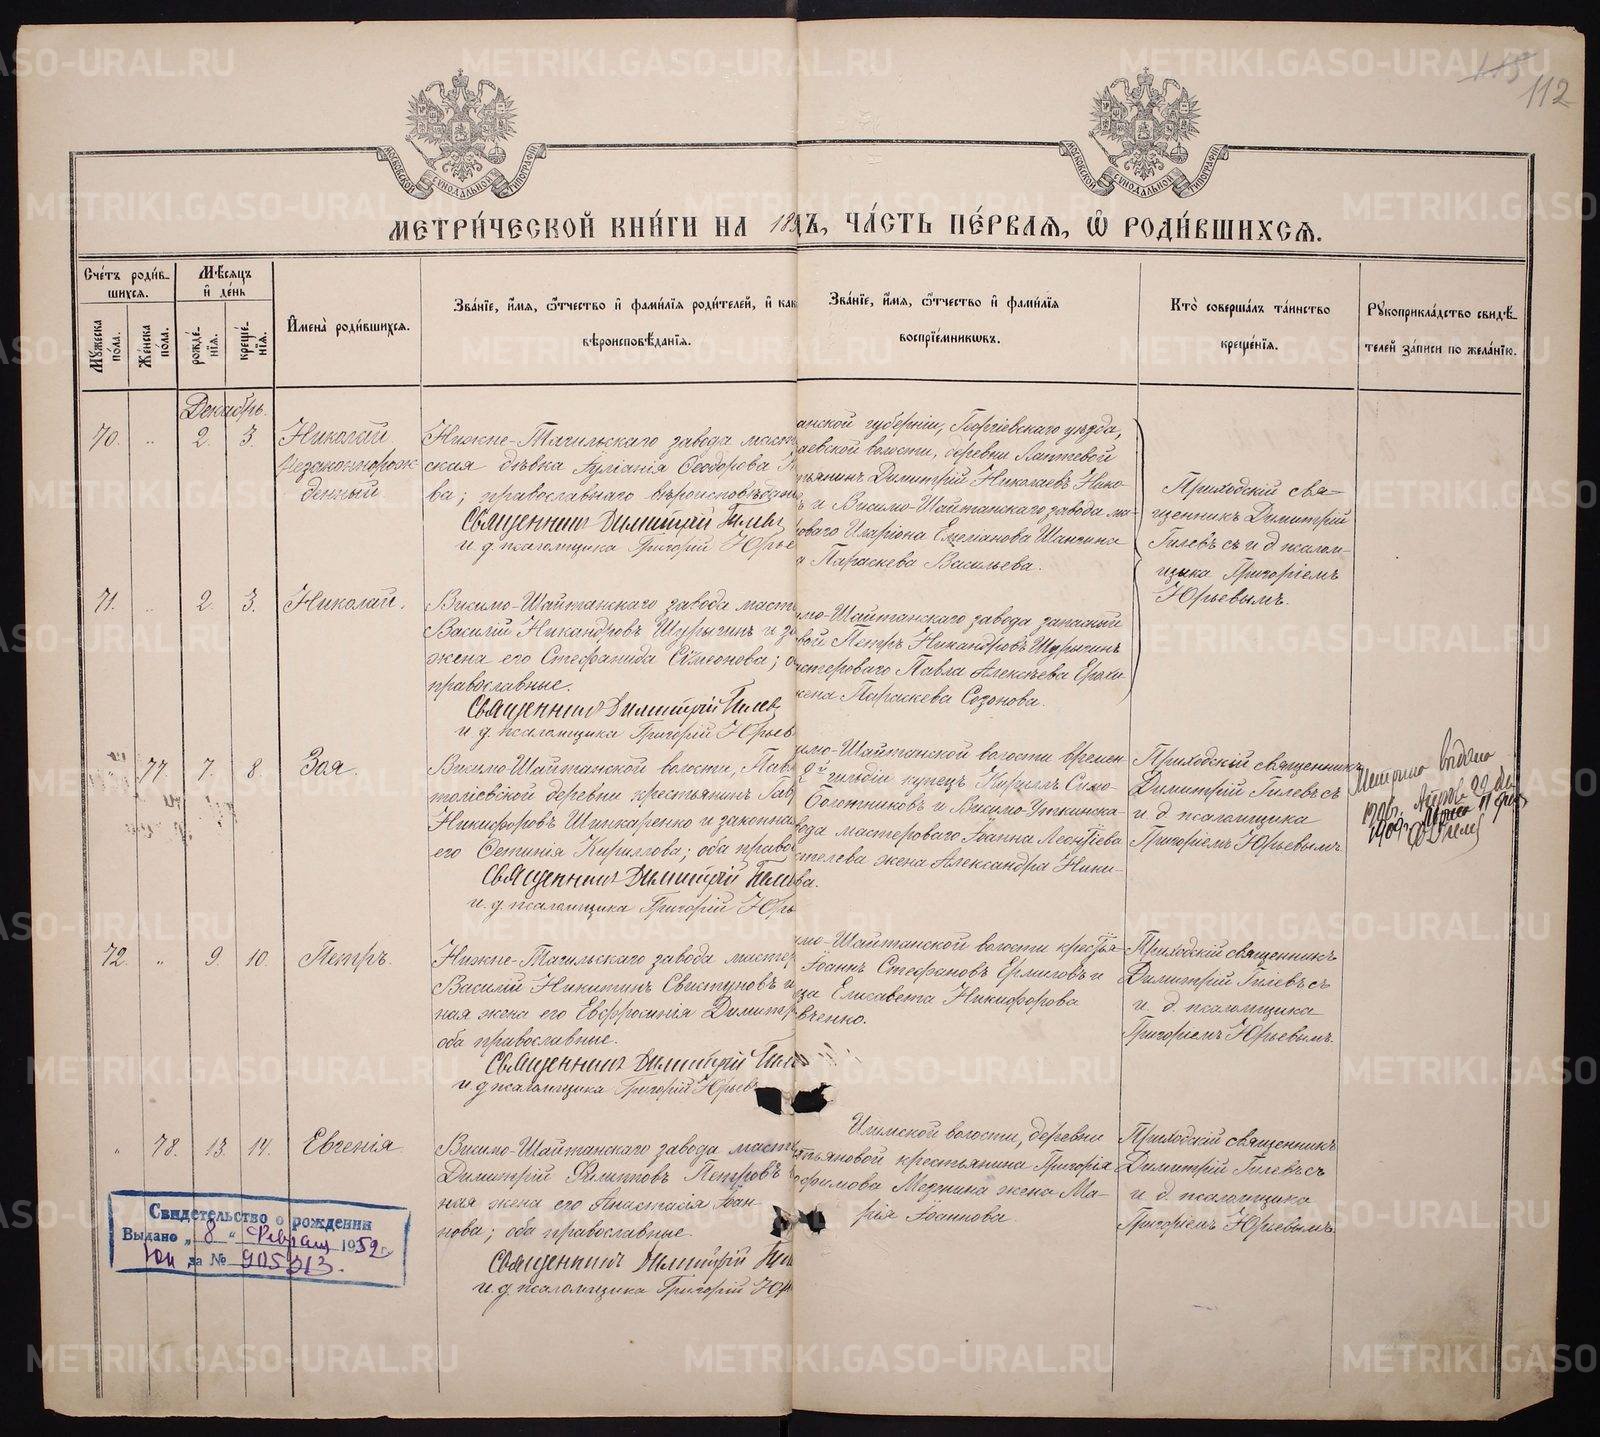 115
112
МОСКОВСКОЙ СИНОДАЛЬНОЙ ТИПОГРАФІИ
МОСКОВСКОЙ СИНОДАЛЬНОЙ ТИПОГРАФІИ
МЕТРИ́ЧЕСКОЙ КНИ́ГИ НА 189 ДЪ, ЧА́СТЬ ПЕ́РВАѦ, Ѽ РОДИ́ВШИХСѦ.
Сче́тъ роди́в-
шихся.
Мѣ́сяцъ
и҆ де́нь
Мꙋ́жеска по́ла.
Же́нска по́ла.
рожде́-
нїя.
креще́-
нїя.
И҆мена̀ роди́вшихся.
Зва́нїе, и҆́мя, ѻ҆́тчество и҆ фами́лїя роди́телей, и҆ как
вѣроисповѣ́данїя.
Зва́нїе, и҆́мя, ѻ҆́тчество и҆ фами́лїя
воспрїе́мникѡвъ.
Кто̀ соверша́лъ та́инство
креще́нїя.
Рꙋкоприкла́дство свидѣ́-
телей за́писи по жела́нїю.
Декабрь.
70. „ 2. 3. Николай
незаконнорож
денный
Нижне-Тагильскаго завода маст
ская дѣвка Іуліанія Ѳеодорова
ва; православнаго вѣроисповѣдан
Священникъ Димитрій Гилев
и. д. псаломщика Григорій Юрье
анской губерніи, Георгіевскаго уѣзда,
аевской волости, деревни Лаптевой
тьянинъ Димитрій Николаевъ Нико-
и Висимо-Шайтанскаго завода ма-
роваго Иларіона Емеліанова Шанчина
а Параскева Васильева.
Приходскій свя-
щенникъ Димитрій
Гилевъ съ и д псалом-
щика Григоріемъ
Юрьевымъ.
71. „ 2. 3. Николай.
Висимо-Шайтанскаго завода масте
Василій Никандровъ Шурыгинъ и за
жена его Стефанида Сѷмеонова; о
православные.
Священникъ Димитрій Гилев
и д. псаломщика Григорій Юрьев
имо-Шайтанскаго завода запасный
вой Петръ Никандровъ Шурыгинъ
астероваго Павла Алексѣева Ерохи
жена Параскева Созонова.
77 7. 8. Зоя.
Висимо-Шайтанской волости, Пав
толіевской деревни крестьянинъ Гав
Никифоровъ Шинкаренко и законна
его Ѳетинія Кириллова; оба право
Священникъ Димитрій Гиле
и. д. псаломщика Григорій Юрь
имо-Шайтанской волости времен
2й гильдіи купецъ Кириллъ Симо-
Болотниковъ и Висимо-Уткинска-
вода мастероваго Іоанна Леонтіева
стелева жена Александра Ники-
ва.
Приходскій священникъ
Димитрій Гилевъ съ
и. д. псаломщика
Григоріемъ Юрьевымъ.
выдана
72. „ 9. 10 Петръ.
Нижне-Тагильскаго завода мастер
Василій Никитинъ Свистуновъ и
ная жена его Евфросинія Димитр
оба православные.
Священникъ Димитрій Гиле
и. д псаломщика Григорій Юрьев
имо-Шайтанской волости крестья
Іоаннъ Стефановъ Ермиловъ и
ца Елисавета Никифорова
вченко.
Приходскій священникъ
Димитрій Гилевъ съ
и. д. псаломщика
Григоріемъ Юрьевымъ.
„ 78. 13. 14. Евгенія
Висимо-Шайтанскаго завода масте
Димитрій Филиповъ Петровъ
ная жена его Анастасія Іоан-
нова; оба православные.
Священникъ Димитрій Гил
и. д. псаломщика Григорій Юр
Илимской волости, деревни
тьяновой крестьянина Григорія
офимова Медянина жена Ма-
рія Іоаннова
Приходскій священникъ
Димитрій Гилевъ съ
и. д. псаломщика
Григоріемъ Юрьевымъ.
Свидетельство о рождении
Выдано „8“ февраля 1952 г.
Юи за № 905313.